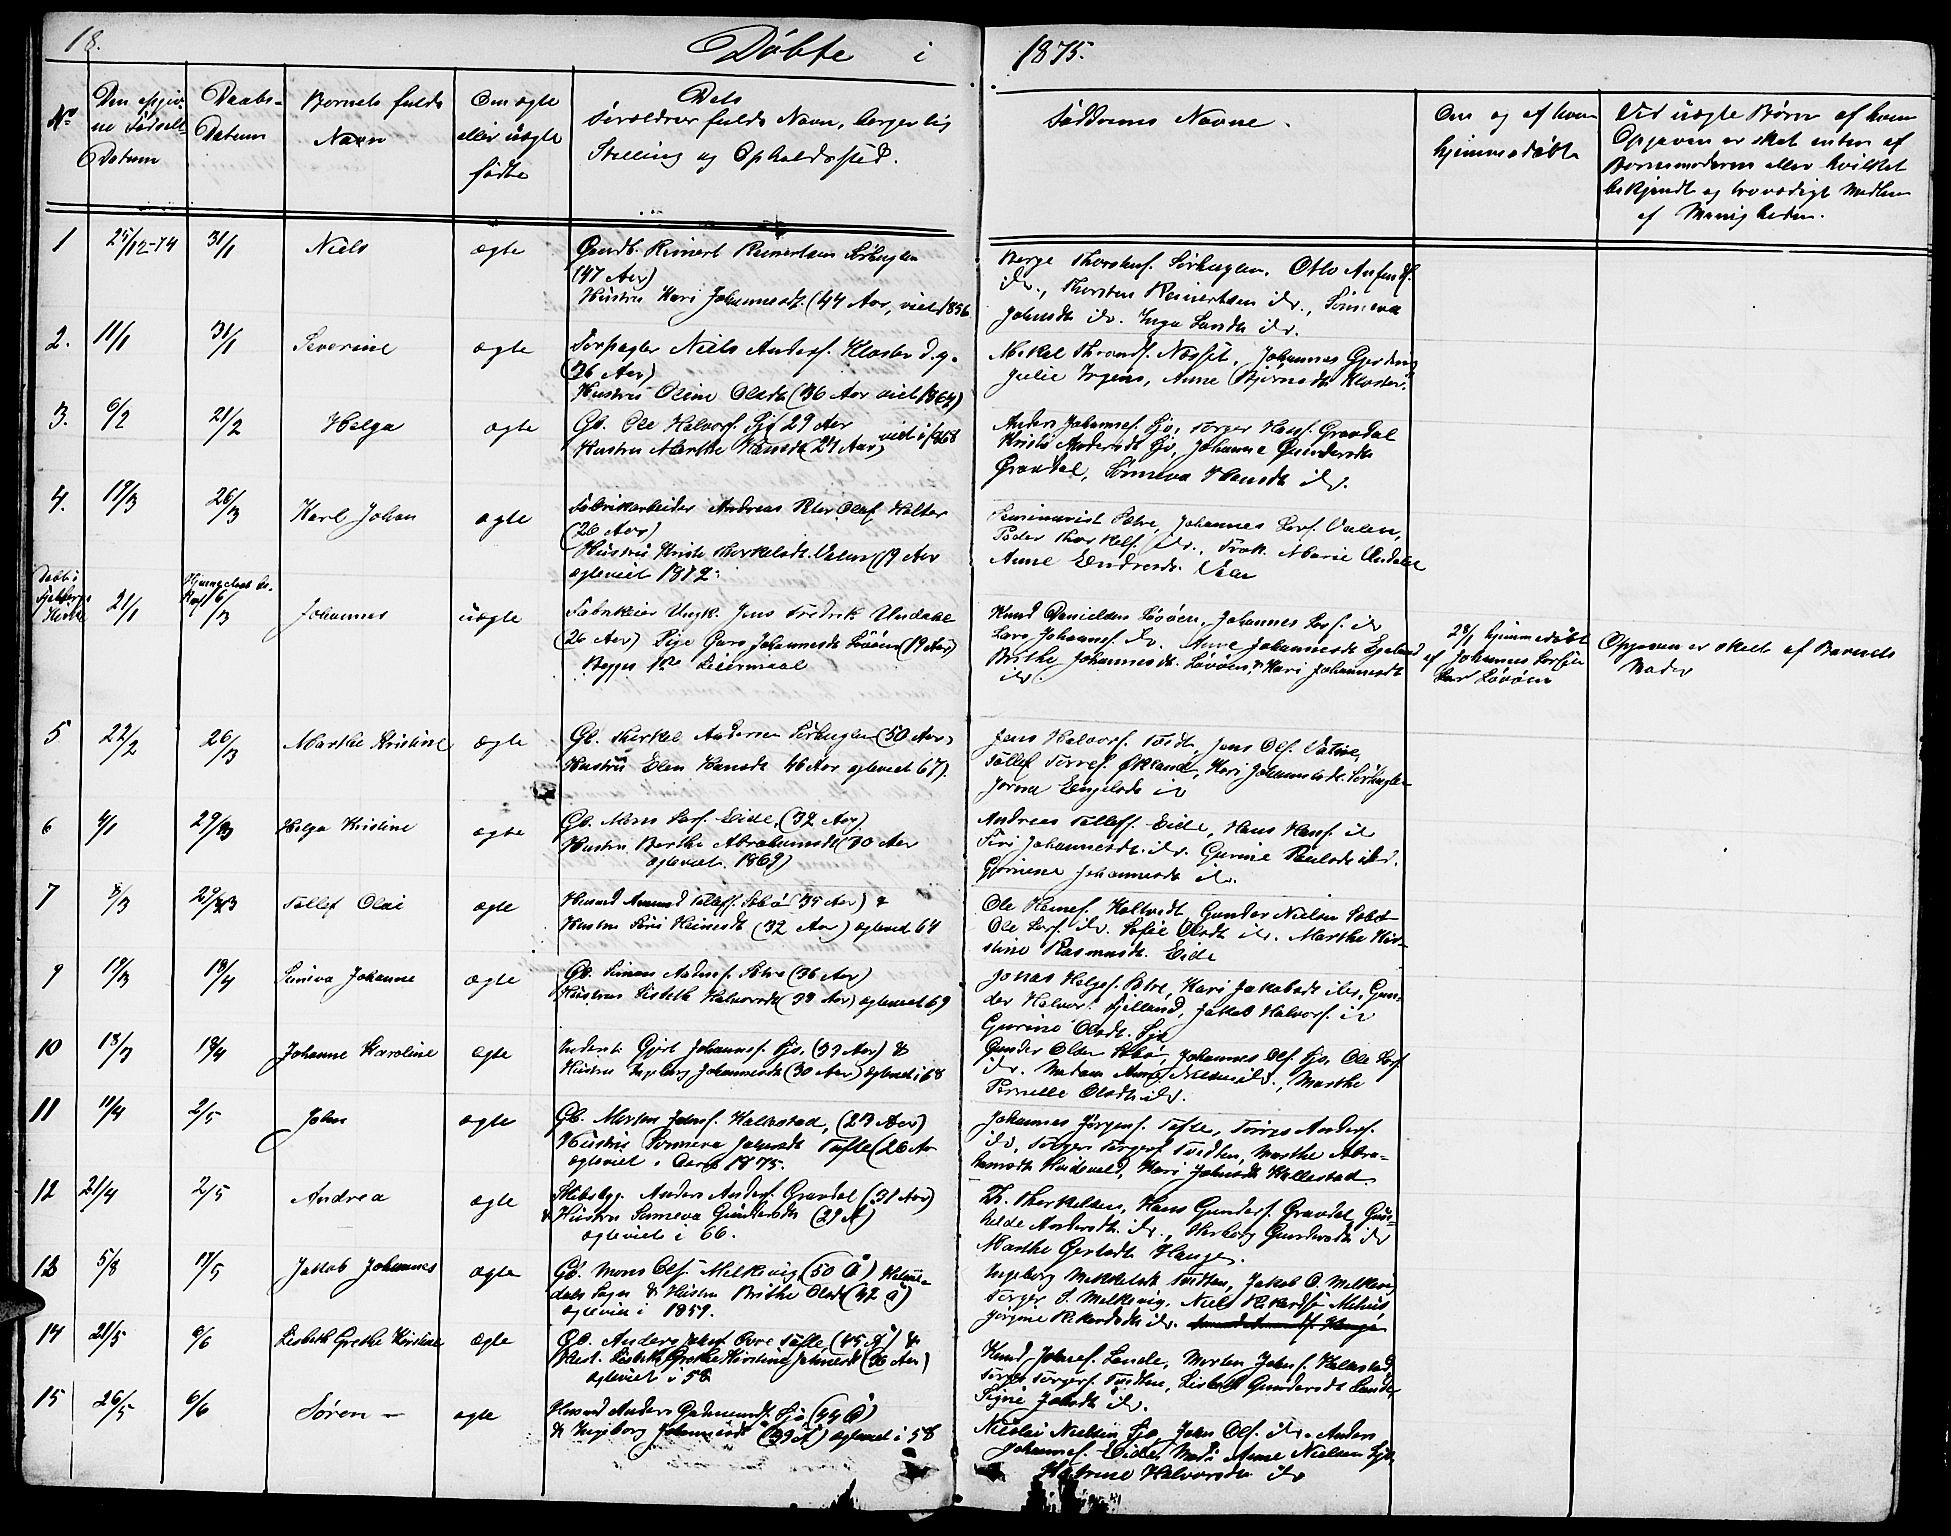 18. Döbte i 1875.
No
Den opgiv-
ne Födsels
Datum
Daabs-
Datum
Barnets fulde
Navn
Om ægte
eller uægte
födte
Dets
Forældres fulde Navn, borgerlig
Stilling og Opholdssted.
Faddernes Navne.
Om og af hvem
hjemmedöbt
Ved uægte Börn af hvem
Opgaven er skeet enten af
Barnemoderen eller hvilket
bekjendt og troværdigt Medlem
af Menigheden.
1 25/12-74 31/1 Niels ægte
Gmdb. Reinert Reinertsen Sörhuglen
(47 Aar)
Hustru Kari Johannesdt. (44 Aar, viet 1856
Berge Thorstens. Sörhuglen, Otto Anfinds.
idr., Thorsten Reinertsen idr., Sönneva
Johnsdt. idr. Inga Larsdt. idr.
2. 11/1 31/1 Severine ægte
Forpagter Niels Anders. Kloster d.y.
(36 Aar)
Hustru Oline Olsdt. (36 Aar viet 1864)
Mikel Thronds. Næsset, Johannes Gjerden
Julie Irgens, Anne Björnsdt. Kloster.
3. 6/2 21/2 Helga ægte
Gb. Ole Halvors. Sjo 29 Aar
Hustru Marthe Hansdt. (24 Aar) viet i 1868
Anders Johannes. Sjo, Torger Hans. Gravdal
Kristi Andersdt. Sjo, Johanne Gundersdt.
Gravdal, Sönneva Hansdt. idr.
4. 19/3 26/3 Karl Johan ægte
Fabrikarbeider Andreas Peter Olaf Holter
(26 Aar)
Hustru Kristi Therkelsdt. Valen (19 Aar
ægteviet 1872.
Seminarist Sætre, Johannes Lars. Valen,
Peder Therkels. idr., Frøk. Marie Undahl
Anne Endresdt. Valen
21/1 /3 Johannes uægte
Fabrikeier Ungk. Jens Fredrik Undahl
(26 Aar) Pige Guro Johannesdt. Lövöen (19 Aar)
Begges 1ste Leiermaal
Knud Danielsen Lövöen, Johannes Lars. idr
Lars Johannes. idr. Anne Johannesdt. Egeland
Brithe Johannesdt. Lövöen, Kari Johannesdt.
idr.
28/1 hjemmedöbt
af Johannes
Lövöen
Opgaven er skeet af Barnets
Moder
5 22/2 26/3 Marthe Kristine ægte
Gb. Therkel Andersen Sörhuglen (50 Aar)
Hustru Elen Hansdt. 46 Aar ægteviet 67).
Jens Halvors. Tvedt, Jens Ols. Vatne,
Tollef Torres. Økland, Kari Johannesdt. Sörhuglen
Jorina Engelsdt. idr
6 4/1 29/3 Helga Kristine ægte
Gb. Mons Lars. Eide, (32 Aar)
Hustru Berthe Abrahamsdt. (30 Aar
ægteviet 1869)
Andreas Tollefs. Eide, Hans Hans. idr
Siri Johannesdt. idr. Gurine Paulsdt. idr.
Gjörinene Johannesdt. idr.
7 8/3 29/3 Tollef Olai ægte
Husmd Amund Tollefs. Sæbö (35 Aar) &
Hustru Siri Heinesdt. (32 Aar) ægteviet 64
Ole Heines. Haltvedt, Gunder Nielsen Sæbö
Ole Lars. idr. Sofie Olsdt. idr. Marthe Kir-
stine Rasmusdt. Eide
9 19/3 18/4 Suneva Johanne ægte
Gb. Simon Anders. Sætre (36 Aar)
Hustru Lisbeth Halvorsdt. (39 Aar) ægteviet 69
Jonas Helges. Sætre, Kari Jakobsdt. idr, Gun-
der Halvors. Fjelland, Jakob Halvors. idr
Gurine Olsdt. Sjo
10 13/3 18/4 Johanne Karoline ægte
Inderst. Gjert Johanns. Sjo, (33 Aar) &
Hustru Ingeborg Johannesdt. (30 Aar) ægteviet i 68
Gunder Olsen Sæbö, Johannes Ols. Sjo, Ole Lars.
idr. Madam Anne Nielsen idr., Marthe
Pernille Olsdt. idr.
11 11/4 2/5 John ægte
Gb. Morten Johns. Hallestad, (23 Aar)
Hustru Sönneva Johnsdt. Tofte (26 Aar
ægteviet i Aaret 1875.
Johannes Jörgens. Tofte, Torres Anders.
idr, Torger Torgers. Tvedten, Marthe Abra-
hamsdt. Hvidsvold, Kari Johnsdt. Hallestad.
12 21/4 2/5 Andrea ægte
Skibsbyg. Anders Anders. Gravdal (31 Aar)
& Hustru Sunneva Gundersdt. (29 A)
ægteviet i 66.
Th. Therkelsen, Hans Gunders. Gravdal, Gun-
helde Andersdt. idr., Herborg Gundersdt. idr
Marthe Gertsdt. Hauge.
13 5/3 17/5 Jakob Johannes ægte
Gb. Mons Ols. Melkevig (50 A)
& Hustru Brithe Olsdt. (42 A)
ægteviet i 1859.
Ingeborg Mikkelsdt. Tvedten, Jakob O. Melkevig
Torger S. Melkevig, Niels Rikards.
Jörgine Rikardsdt. idr.
14 21/5 6/6 Lisbeth Grethe Kirstine ægte
Gb. Anders Johns. Övre Tofte (45 A) &
Hust. Lisbeth Grethe Kirstine Johnsdt. (36 Aar)
ægteviet i 58
Knud Johnes. Lande, Morten Johns. Hallestad
Torger Torgers. Tvedten, Lisbeth Gundersdt. Lande,
Signe Johsdt. idr.
15 26/5 6/6 Sören – ægte
Husmd Anders Gudmunds. Sjo (44 A)
& Ingeborg Johannesdt. (39 A) ægteviet i 58
Nicolai Nielsen Sjo, John Ols. idr. Anders
Johannes. Eide, Md. Anne Nielsen Sjo,
Katrine Halvorsdt. idr